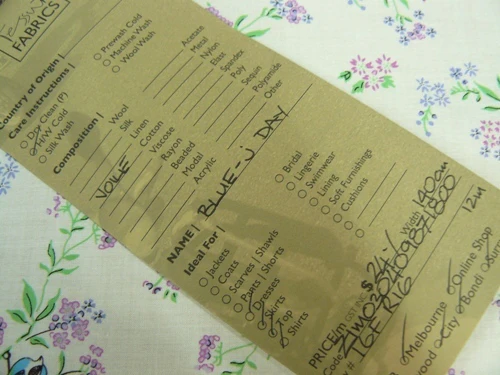 Tessuti
FABRICS
Country of Origin |
Care Instructions |
Dry Clean (P)
H/W Cold
Silk Wash
Prewash Cold
Machine Wash
Wool Wash
Composition |
VOILE
Wool
Silk
Linen
Cotton
Viscose
Rayon
Beaded
Modal
Acrylic
Acetate
Metal
Nylon
Elast
Spandex
Poly
Sequin
Polyamide
Other
NAME | BLUE-J DAY
Ideal For |
Jackets
Coats
Scarves | Shawls
Pants | Shorts
Dresses
Skirts
Top
Shirts
Bridal
Lingerie
Swimwear
Lining
Soft Furnishings
Cushions
PRICE/m GST INC $24-/
Width 140cm
Code
IGF R16
12m
Melbourne
City
Online Shop
Bondi